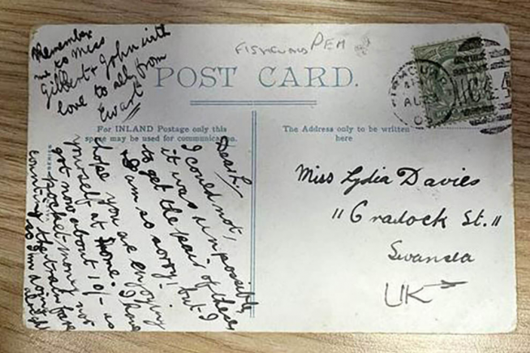 Remember
me to Miss
Gilbert & John with
love to all from
Ewart
FISHGUARD PEM
POST CARD.
For INLAND Postage only this
space may be used for communication.
The Address only to be written
here
Dear L,
I could not,
it was impossible
to get the pair of these
I am so sorry! but I
hope you are enjoying
yourself at home. I have
got now about 10/- as
pocket money, not
counting the train fare
so I'm
Miss Lydia Davies
"11 Cradock St."
Swansea
UK